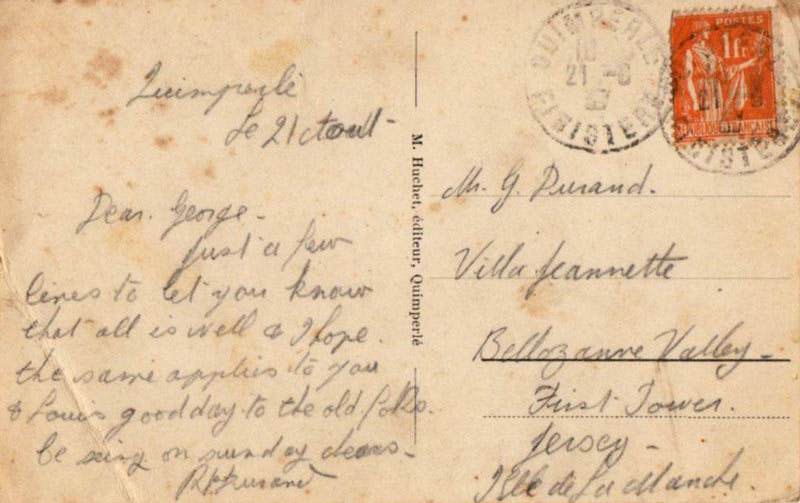 Quimperlé
Le 21 Aout
Dear. George -
Just a few
lines to let you know
that all is well & I hope.
the same applies to you
& Louis good day to the old folks.
be seing on sunday
Durand
M. Huchet, éditeur, Quimperlé
QUIMPERLÉ
21 - 8
FINISTERE
POSTES
1 fr
RÉPUBLIQUE FRANÇAISE
Mr. G. Durand.
Villa Jeannette
Bellozanne Valley -
First Tower.
Jersey -
Isle de La Manche.